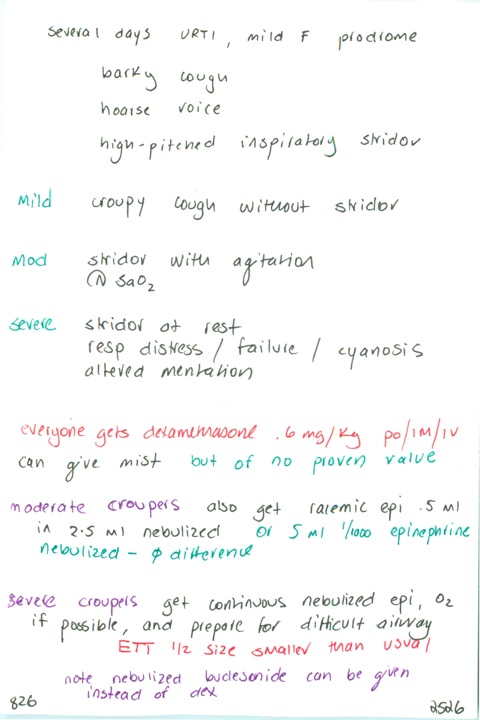 several days URTI, mild F prodrome
barky cough
hoarse voice
high-pitched inspiratory stridor
Mild croupy cough without stridor
Mod stridor with agitation
Ⓝ SaO₂
severe stridor at rest
resp distress / failure / cyanosis
altered mentation
everyone gets dexamethasone .6 mg/kg po/IM/IV
can give mist but of no proven value
moderate croupers also get racemic epi .5 ml
in 2.5 ml nebulized or 5 ml 1/1000 epinephrine
nebulized - ϕ difference
severe croupers get continuous nebulized epi, O₂
if possible, and prepare for difficult airway
ETT 1/2 size smaller than usual
note nebulized budesonide can be given
instead of dex
826 2526